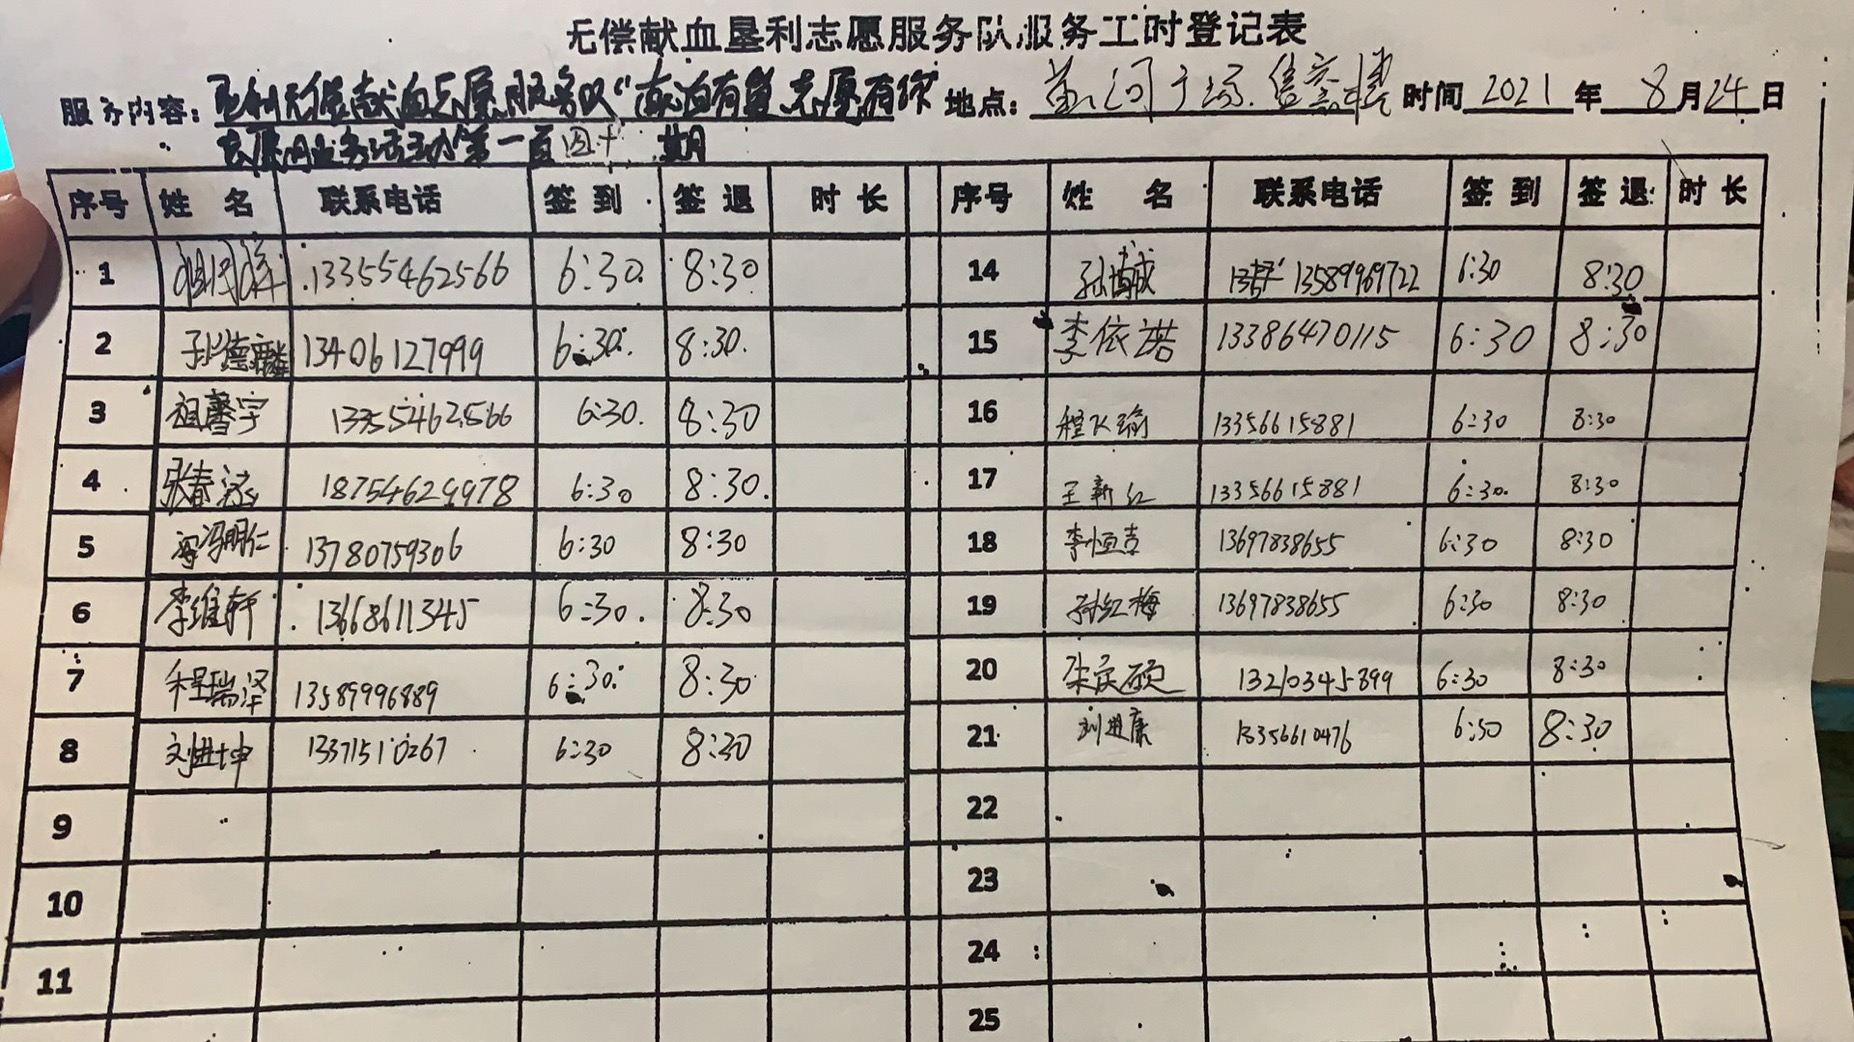 无偿献血垦利志愿服务队服务工时登记表
服务内容: 垦利无偿献血志愿服务队"献血有益 志愿有你" 地点: 黄河广场 时间 2021 年 8 月 24 日
志愿服务活动第一百四十 期
序号 姓 名 联系电话 签 到 签 退 时 长 序号 姓 名 联系电话 签 到 签 退 时 长
1 13355462566 6:30 8:30 14 孙博诚 13589969722 6:30 8:30
2 孙德麟 13406127999 6:30 8:30 15 李依诺 13386470115 6:30 8:30
3 祖馨宇 13355462566 6:30 8:30 16 程飞瑜 13356615881 6:30 8:30
4 张春 18754629978 6:30 8:30 17 王新红 13356615881 6:30 8:30
5 冯朋仁 13780759306 6:30 8:30 18 李恒吉 13697838655 6:30 8:30
6 李维轩 13668611345 6:30 8:30 19 孙红梅 13697838655 6:30 8:30
7 程瑞泽 13589996889 6:30 8:30 20 硕 13210345899 6:30 8:30
8 刘进坤 13371510267 6:30 8:30 21 刘进康 13356610476 6:30 8:30
9 22
10 23
11 24
25